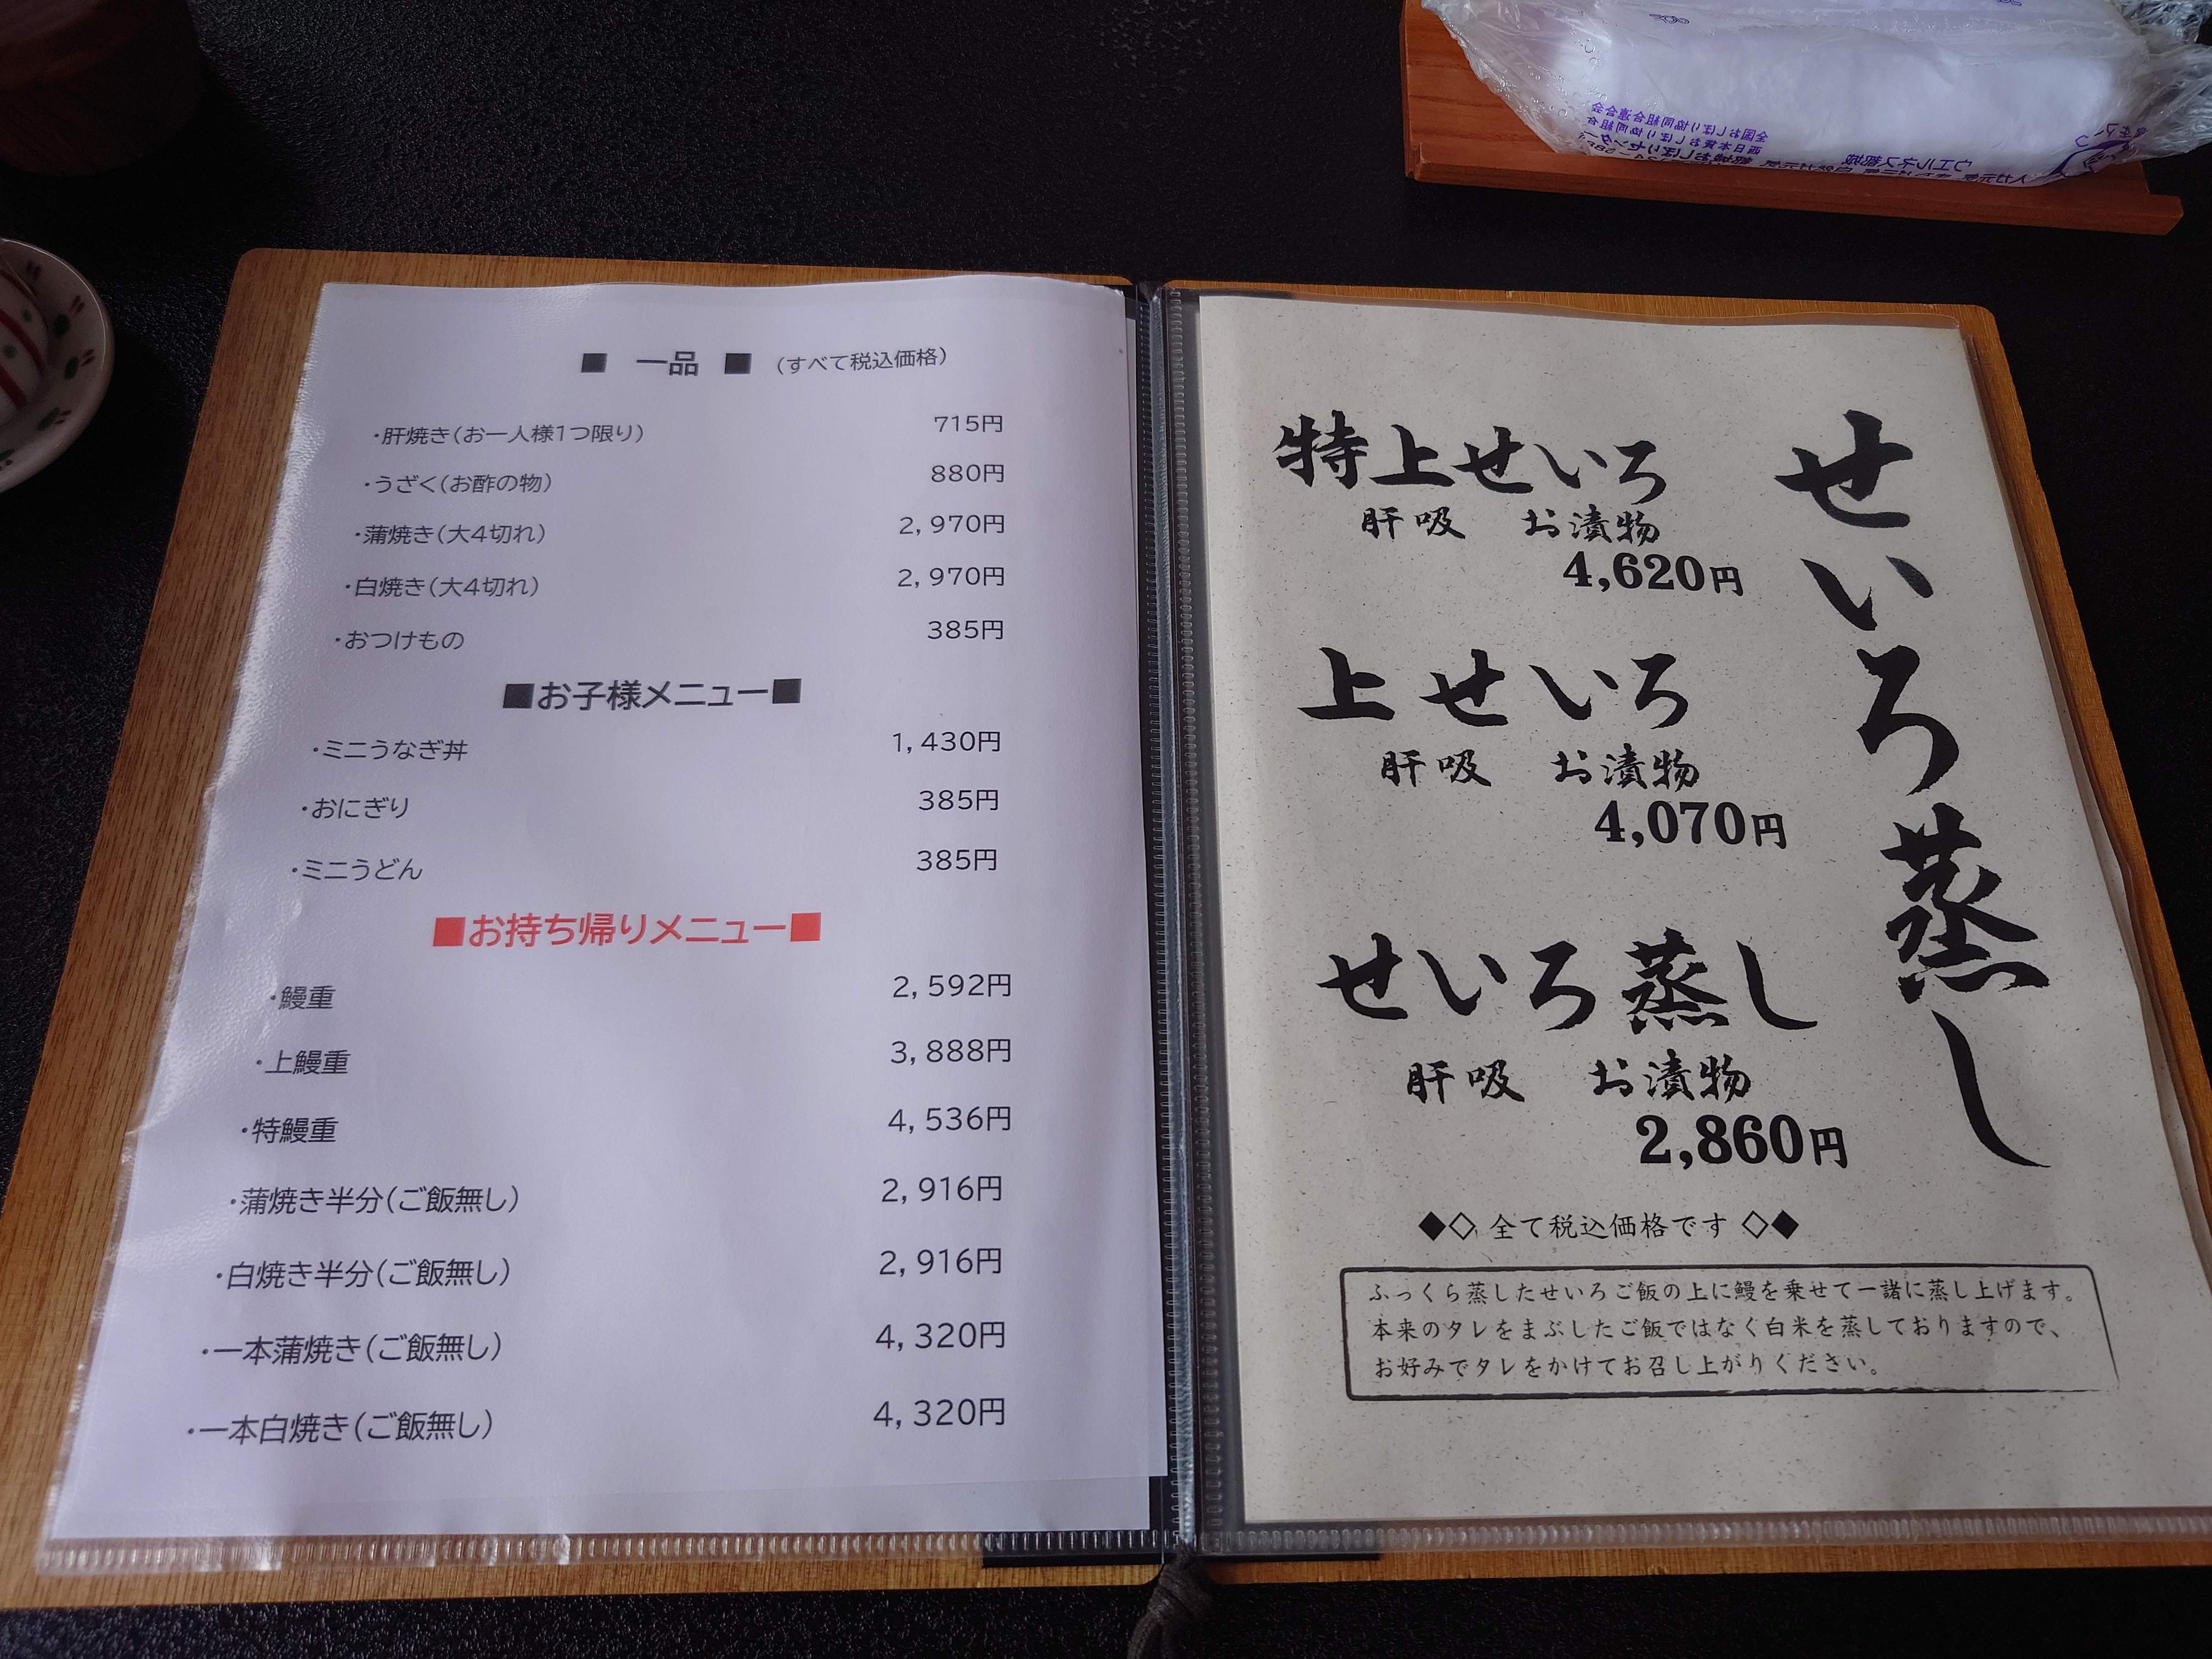 ■ 一品 ■ (すべて税込価格)
・肝焼き(お一人様1つ限り) 715円
・うざく(お酢の物) 880円
・蒲焼き(大4切れ) 2,970円
・白焼き(大4切れ) 2,970円
・おつけもの 385円
■お子様メニュー■
・ミニうなぎ丼 1,430円
・おにぎり 385円
・ミニうどん 385円
■お持ち帰りメニュー■
・鰻重 2,592円
・上鰻重 3,888円
・特鰻重 4,536円
・蒲焼き半分(ご飯無し) 2,916円
・白焼き半分(ご飯無し) 2,916円
・一本蒲焼き(ご飯無し) 4,320円
・一本白焼き(ご飯無し) 4,320円
せいろ蒸し
特上せいろ
肝吸 お漬物
4,620円
上せいろ
肝吸 お漬物
4,070円
せいろ蒸し
肝吸 お漬物
2,860円
◆◇ 全て税込価格です ◇◆
ふっくら蒸したせいろご飯の上に鰻を乗せて一諸に蒸し上げます。
本来のタレをまぶしたご飯ではなく白米を蒸しておりますので、
お好みでタレをかけてお召し上がりください。
全国おしぼり協同組合連合会
西日本貸おしぼり協同組合
ウエルネス都城